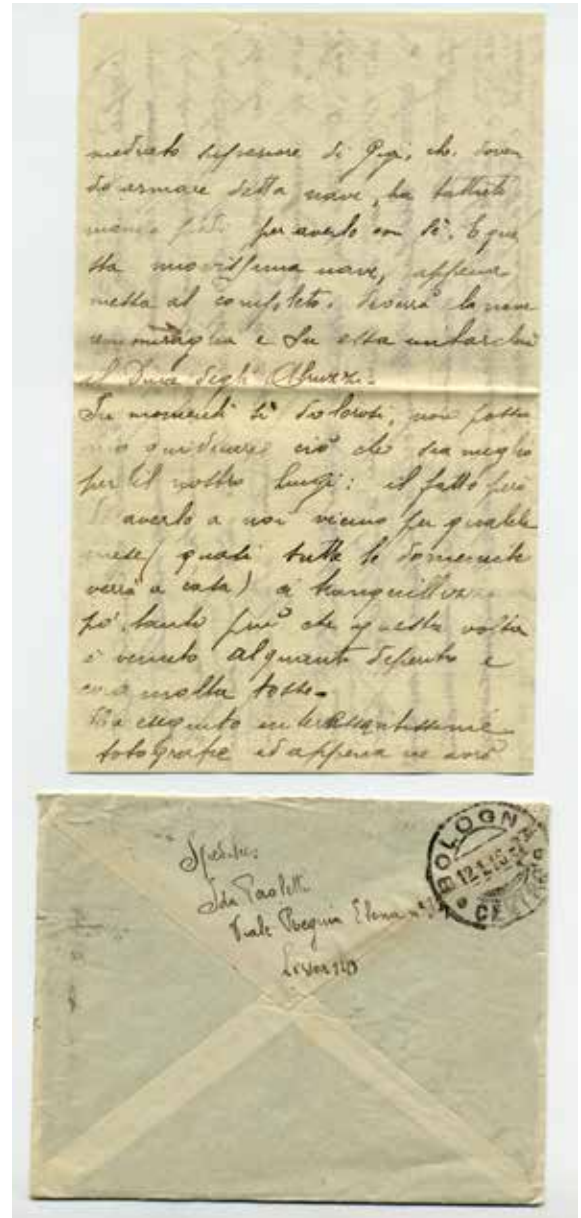 mediato superiore di Gigi, che doven
do armare detta nave, ha battuto
mani e piedi per averlo con sè. E que
sta nuovissima nave, appena
messa al completo, diverrà la nave
ammiraglia e su essa imbarcherà
il Duca degli Abruzzi.
In momenti sì dolorosi, non possia
mo giudicare ciò che sia meglio
per il nostro Luigi: il fatto però
di averlo a noi vicino per qualche
mese (quasi tutte le domeniche
verrà a casa) ci tranquillizza
pò tanto più che questa volta
è venuto alquanto deperito e
con molta tosse.
Ha eseguito interessantissime
fotografie ed appena ne avrò
Spedisce
Ida Paoletti
Viale Regina Elena nº
Livorno
BOLOGNA
12.1.16